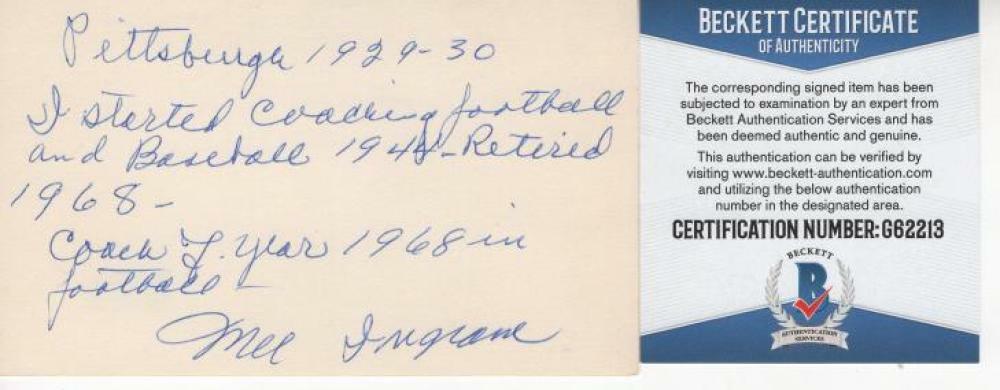 Pittsburgh 1929-30
I started Coaching football
and Baseball 1944-Retired
1968-
Coach of. year 1968 in
football-
Mel Ingram
BECKETT CERTIFICATE
OF AUTHENTICITY
The corresponding signed item has been
subjected to examination by an expert from
Beckett Authentication Services and has
been deemed authentic and genuine.
This authentication can be verified by
visiting www.beckett-authentication.com
and utilizing the below authentication
number in the designated area.
CERTIFICATION NUMBER: G62213
BECKETT
B
AUTHENTICATION
SERVICES